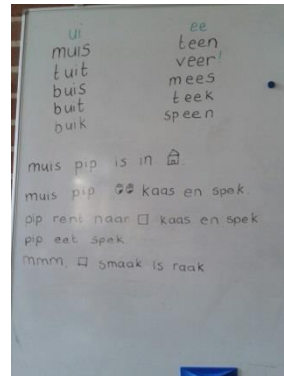 ui
muis
tuit
buis
buit
buik
ee
teen
veer!
mees
teek
speen
muis pip is in
muis pip kaas en spek.
pip rent naar kaas en spek
pip eet spek
mmm, smaak is raak